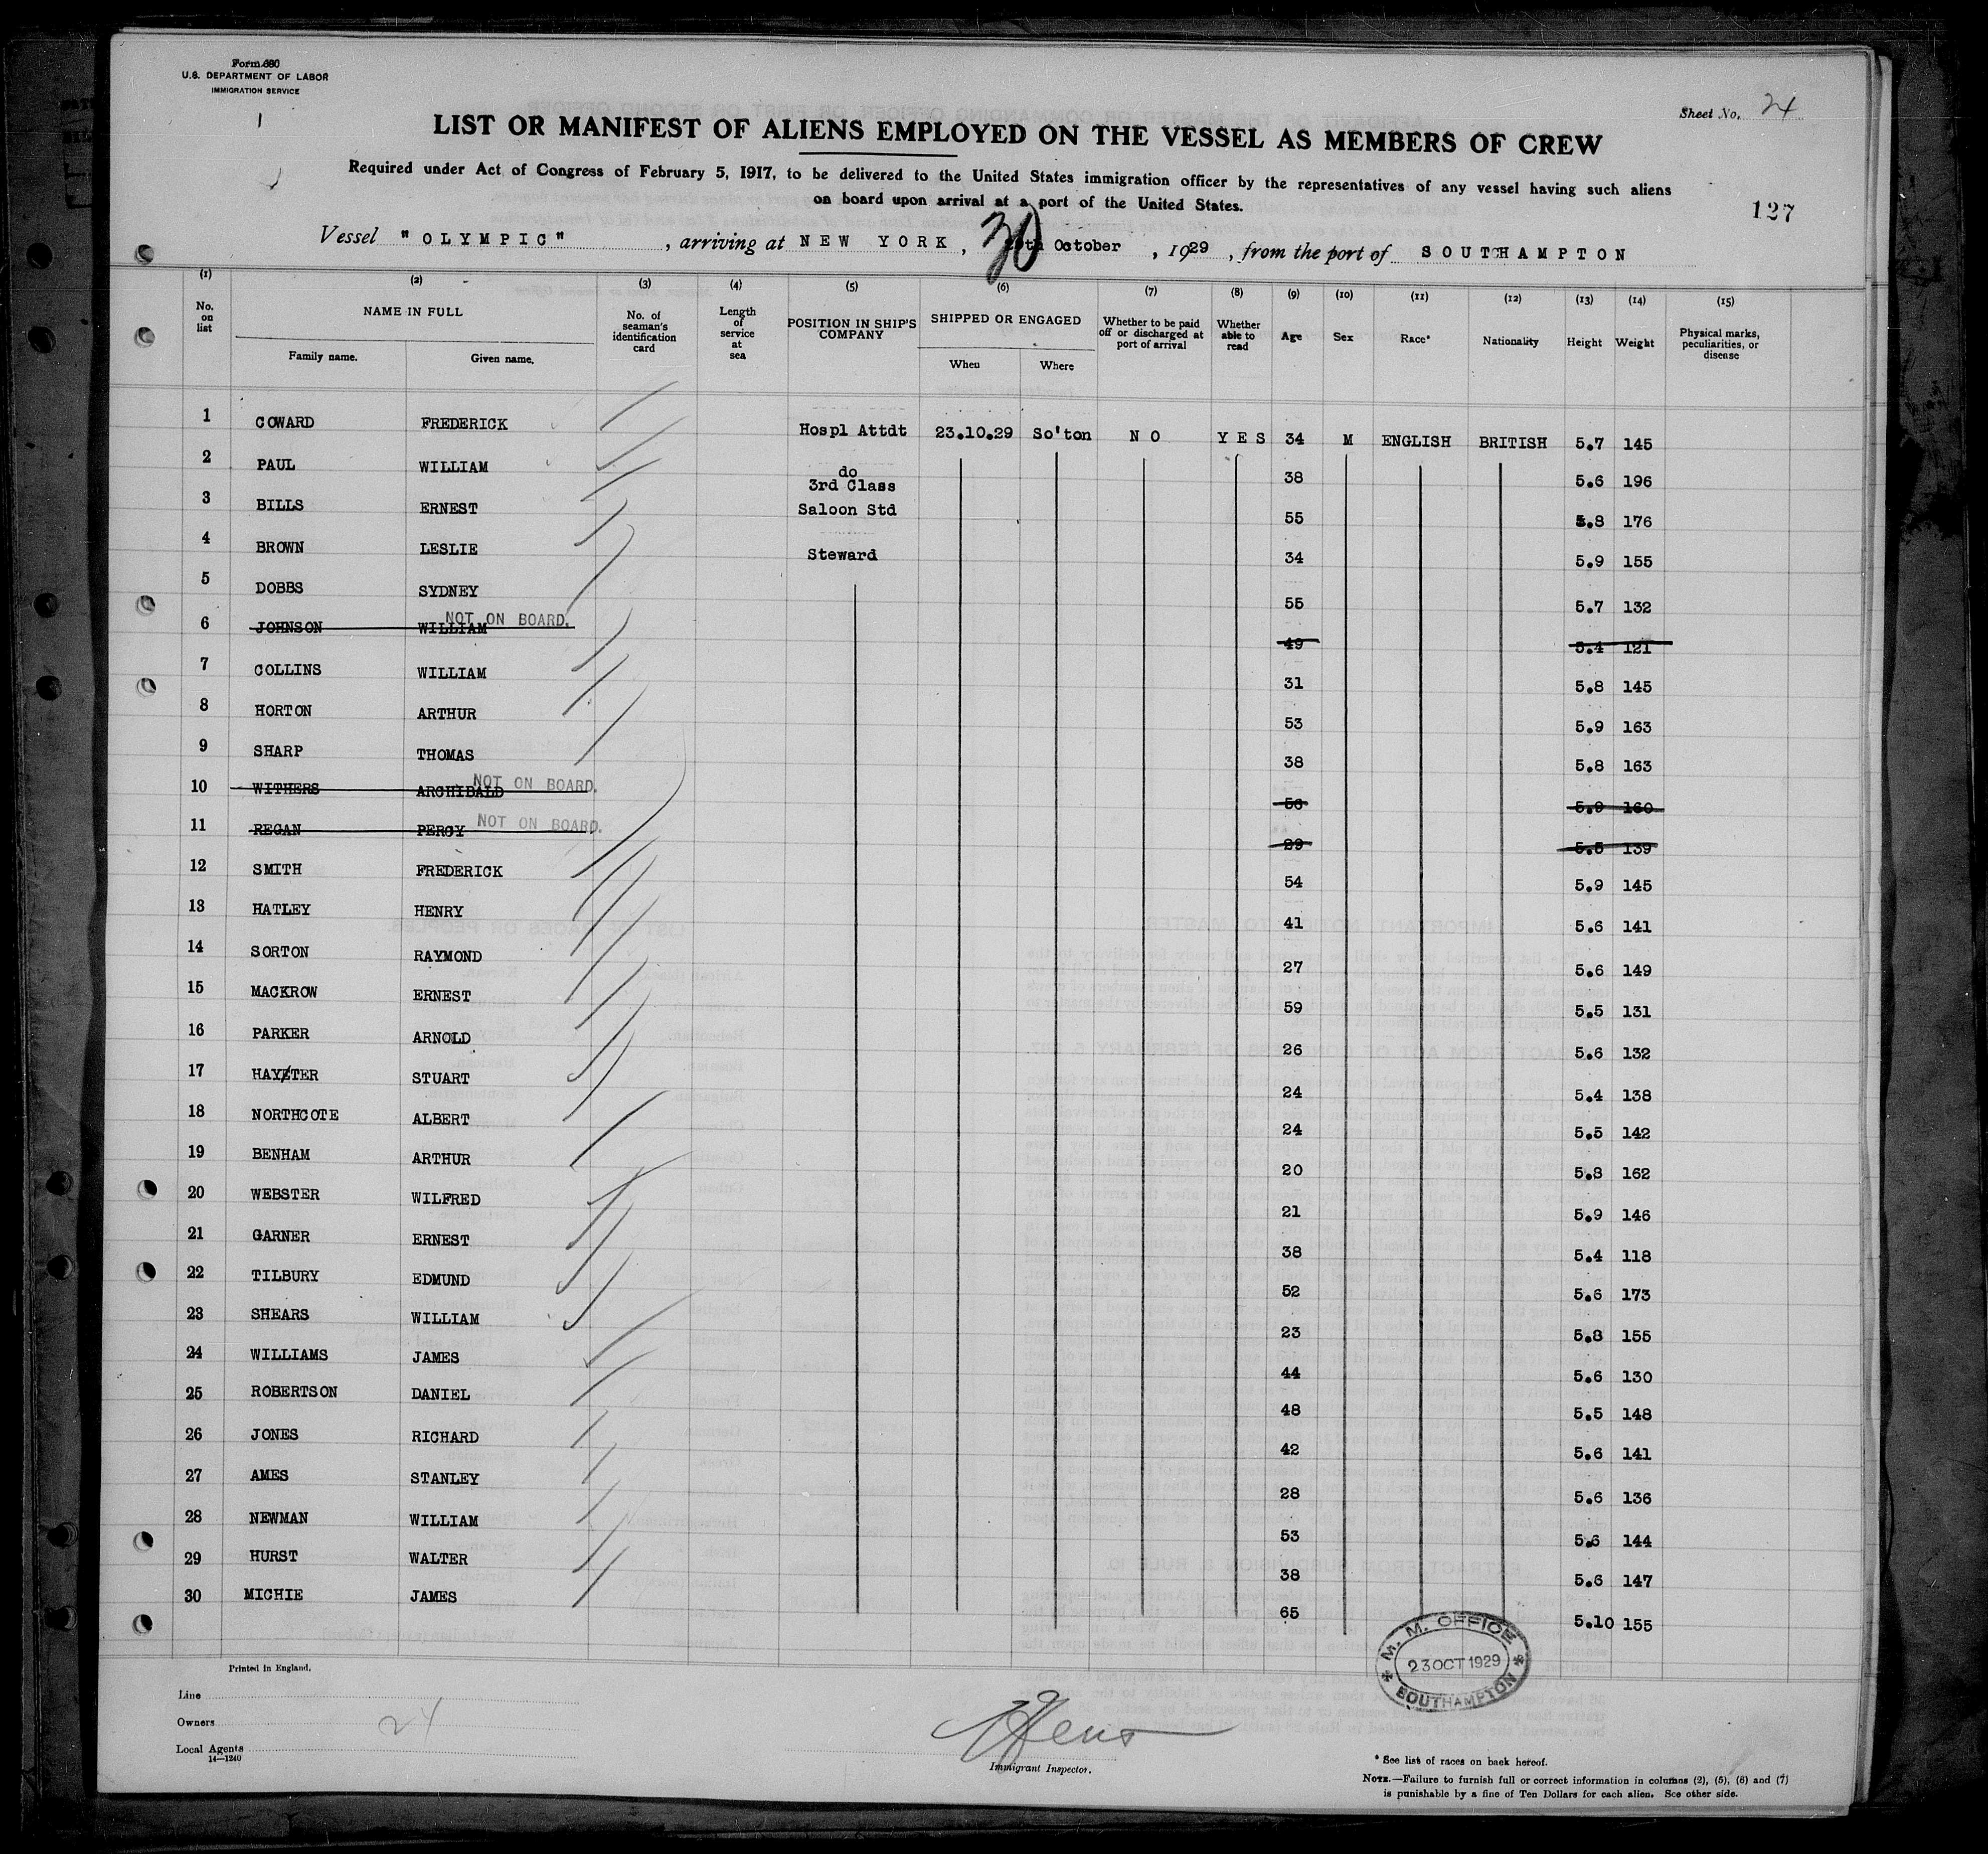 Form 680
U.S. DEPARTMENT OF LABOR
IMMIGRATION SERVICE
Sheet No. 24
LIST OR MANIFEST OF ALIENS EMPLOYED ON THE VESSEL AS MEMBERS OF CREW
Required under Act of Congress of February 5, 1917, to be delivered to the United States immigration officer by the representatives of any vessel having such aliens
on board upon arrival at a port of the United States.
127
Vessel "OLYMPIC", arriving at NEW YORK, 30 October, 1929, from the port of SOUTHAMPTON
(1) (2) (3) (4) (5) (6) (7) (8) (9) (10) (11) (12) (13) (14) (15)
No. on list NAME IN FULL No. of seaman's identification card Length of service at sea POSITION IN SHIP'S COMPANY SHIPPED OR ENGAGED Whether to be paid off or discharged at port of arrival Whether able to read Age Sex Race* Nationality Height Weight Physical marks, peculiarities, or disease
Family name. Given name. When Where
1 COWARD FREDERICK Hospl Attdt 23.10.29 So'ton NO YES 34 M ENGLISH BRITISH 5.7 145
2 PAUL WILLIAM do 38 5.6 196
3 BILLS ERNEST 3rd Class Saloon Std 55 5.8 176
4 BROWN LESLIE Steward 34 5.9 155
5 DOBBS SYDNEY 55 5.7 132
6 JOHNSON WILLIAM NOT ON BOARD. 49 5.4 121
7 COLLINS WILLIAM 31 5.8 145
8 HORTON ARTHUR 53 5.9 163
9 SHARP THOMAS 38 5.8 163
10 WITHERS ARCHIBALD NOT ON BOARD. 56 5.9 160
11 REGAN PERCY NOT ON BOARD. 29 5.5 139
12 SMITH FREDERICK 54 5.9 145
13 HATLEY HENRY 41 5.6 141
14 SORTON RAYMOND 27 5.6 149
15 MACKROW ERNEST 59 5.5 131
16 PARKER ARNOLD 26 5.6 132
17 HAYTER STUART 24 5.4 138
18 NORTHCOTE ALBERT 24 5.5 142
19 BENHAM ARTHUR 20 5.8 162
20 WEBSTER WILFRED 21 5.9 146
21 GARNER ERNEST 38 5.4 118
22 TILBURY EDMUND 52 5.6 173
23 SHEARS WILLIAM 23 5.8 155
24 WILLIAMS JAMES 44 5.6 130
25 ROBERTSON DANIEL 48 5.5 148
26 JONES RICHARD 42 5.6 141
27 AMES STANLEY 28 5.6 136
28 NEWMAN WILLIAM 53 5.6 144
29 HURST WALTER 38 5.6 147
30 MICHIE JAMES 65 5.10 155
M. M. OFFICE
23 OCT 1929
SOUTHAMPTON
Printed in England.
Line
Owners 24
Local Agents
14—1240
Immigrant Inspector.
* See list of races on back hereof.
NOTE.—Failure to furnish full or correct information in columns (2), (5), (6) and (7)
is punishable by a fine of Ten Dollars for each alien. See other side.